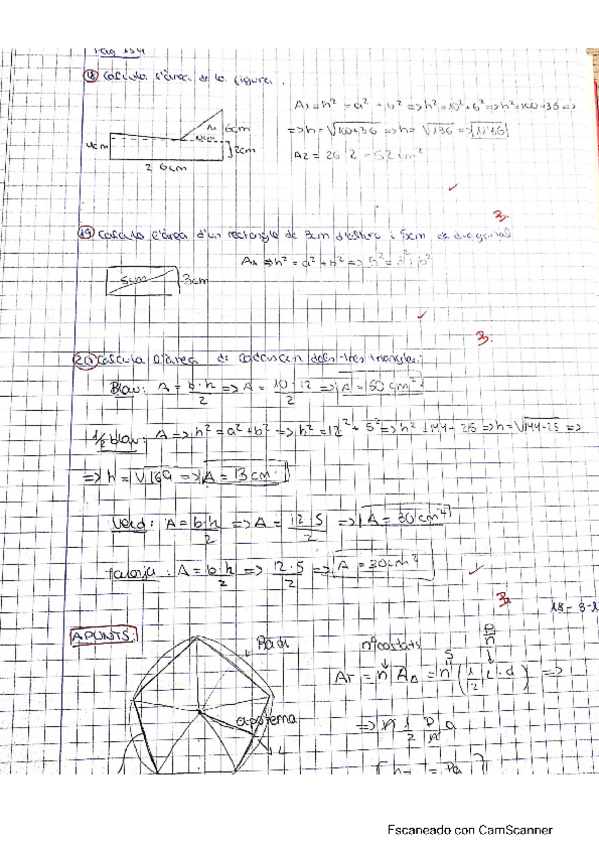 Pag 154
18 Calcula l'àrea de la figura.
A₁ = h² = a² + b² => h² = 10² + 6² => h² = 100 + 36 =>
=> h = √100+36 => h = √136 => 11'46
A2 = 26·2 = 52 cm²
A₁ 6cm
4cm
2cm
26cm
3.
19 Calcula l'àrea d'un rectangle de 3cm d'altura i 5cm de diagonal
A₁ => h² = a² + b² => 5² = a² + b²
5cm 3cm
3.
20 Calcula l'àrea de cadascun dels tres triangles:
Blau: A = b·h/2 => A = 10·12/2 => A = 60 cm²
1/2 blau: A => h² = a² + b² => h² = 12² + 5² => h² = 144 + 25 => h = √144+25 =>
=> h = √169 => A = 13 cm
Verd: A = b·h/2 => A = 12·5/2 => A = 30 cm²
taronja: A = b·h/2 => 12·5/2 => A = 30 cm²
3.
18-3-2
APUNTS:
apotema
L
nº costats
P/n
Ar = n A△ = n (1/2 L · a) =>
=> n 1/2 P/n a
Escaneado con CamScanner